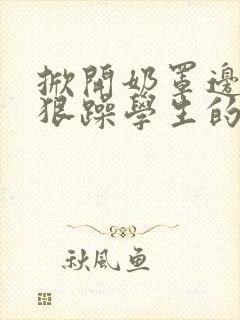 掀開奶罩邊
狠躁學生的
秋風魚